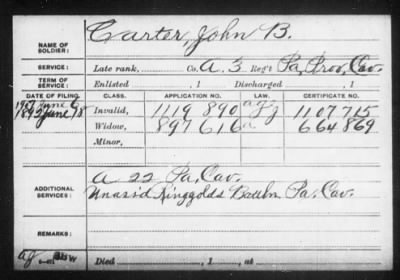 NAME OF SOLDIER: Carter, John B.
SERVICE: Late rank, Co. A. 3 Reg't Pa. Prov. Cav.
TERM OF SERVICE: Enlisted , 1 Discharged , 1
DATE OF FILING. CLASS. APPLICATION NO. LAW. CERTIFICATE NO.
June 6 Invalid, 1119 890 1107715
1892 June 18 Widow, 897 616 664 869
Minor,
ADDITIONAL SERVICES: A 22 Pa. Cav.
Unassd Ringgolds Battln Pa. Cav.
REMARKS:
Died , 1 , at